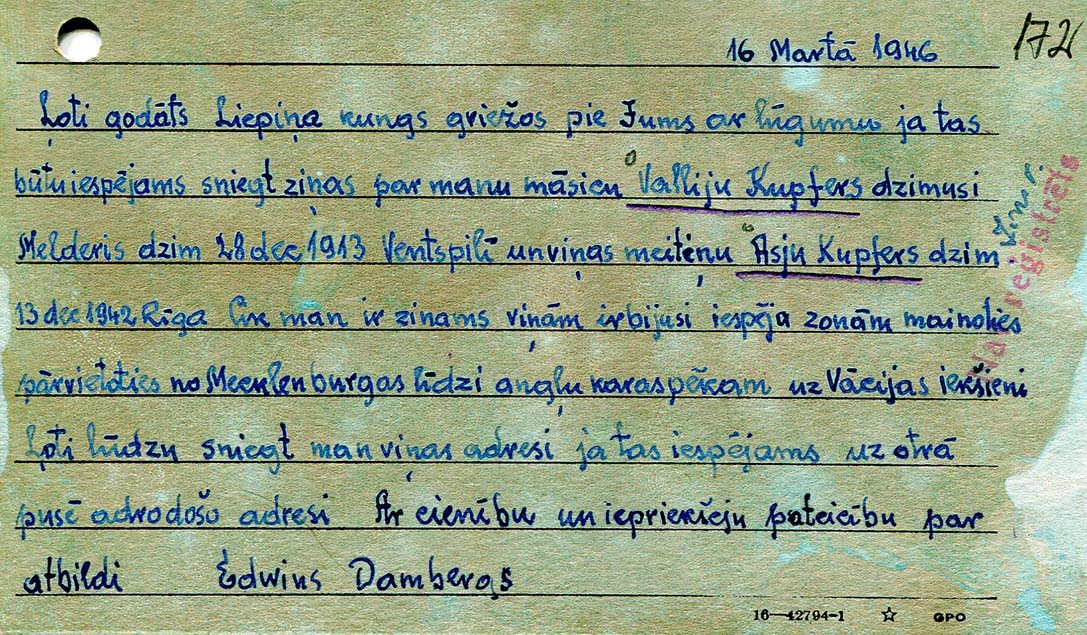 172
16 Martā 1946
Ļoti godāts Liepiņa kungs griežos pie Jums ar lūgumu ja tas
būtu iespējams sniegt ziņas par manu māsicu Valliju Kupfers dzimusi
Melderis dzim 28 dec 1913 Ventspilī un viņas meitēnu Asju Kupfers dzim.
13 dec 1942 Rīga Cik man ir zinams viņām ir bijusi iespēja zonām mainoties
pārvietoties no Mecklenburgas līdzi angļu karaspēkam uz Vācijas iekšieni
Ļoti lūdzu sniegt man viņas adresi ja tas iespējams uz otrā
pusē adrodošo adresi Ar cienību un iepriekšēju pateicību par
atbildi Edwins Dambergs
reģistrēts
16—42794-1 ☆ GPO